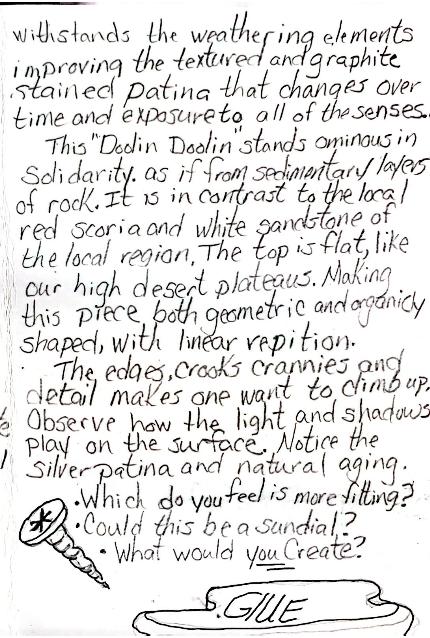 withstands the weathering elements
improving the textured and graphite
stained patina that changes over
time and exposure to all of the senses.
This "Doolin Doolin" stands ominous in
Solidarity. as if from sedimentary layers
of rock. It is in contrast to the local
red scoria and white sandstone of
the local region, The top is flat, like
our high desert plateaus. Making
this piece both geometric and organicly
shaped, with linear repition.
The edges, crooks crannies and
detail makes one want to climb up.
Observe how the light and shadows
play on the surface. Notice the
silver patina and natural aging.
• Which do you feel is more fitting?
• Could this be a sundial?
• What would you Create?
GlUE